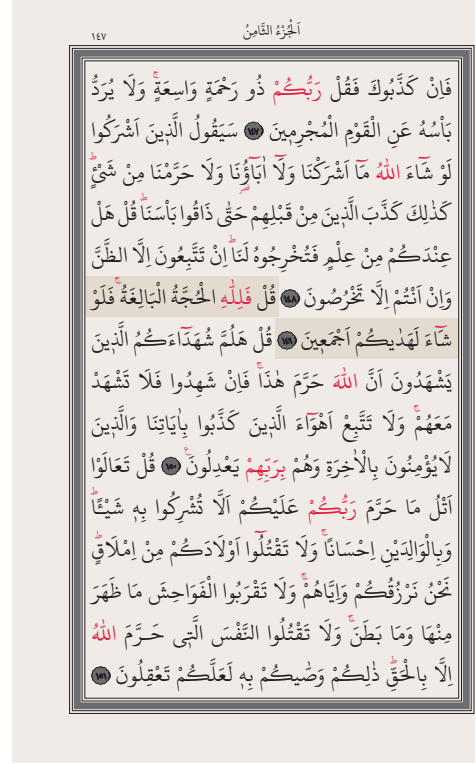 اَلْجُزْءُ الثَّامِنُ
١٤٧
فَاِنْ كَذَّبُوكَ فَقُلْ رَبُّكُمْ ذُو رَحْمَةٍ وَاسِعَةٍۚ وَلَا يُرَدُّ
بَأْسُهُ عَنِ الْقَوْمِ الْمُجْرِمٖينَ ١٤٧ سَيَقُولُ الَّذٖينَ اَشْرَكُوا
لَوْ شَٓاءَ اللّٰهُ مَٓا اَشْرَكْنَا وَلَٓا اٰبَٓاؤُ۬نَا وَلَا حَرَّمْنَا مِنْ شَیْءٍؕ
كَذٰلِكَ كَذَّبَ الَّذٖينَ مِنْ قَبْلِهِمْ حَتّٰى ذَاقُوا بَأْسَنَاؕ قُلْ هَلْ
عِنْدَكُمْ مِنْ عِلْمٍ فَتُخْرِجُوهُ لَنَاؕ اِنْ تَتَّبِعُونَ اِلَّا الظَّنَّ
وَاِنْ اَنْتُمْ اِلَّا تَخْرُصُونَ ١٤٨ قُلْ فَلِلّٰهِ الْحُجَّةُ الْبَالِغَةُۚ فَلَوْ
شَٓاءَ لَهَدٰيكُمْ اَجْمَعٖينَ ١٤٩ قُلْ هَلُمَّ شُهَدَٓاءَكُمُ الَّذٖينَ
يَشْهَدُونَ اَنَّ اللّٰهَ حَرَّمَ هٰذَاۚ فَاِنْ شَهِدُوا فَلَا تَشْهَدْ
مَعَهُمْۚ وَلَا تَتَّبِعْ اَهْوَٓاءَ الَّذٖينَ كَذَّبُوا بِاٰيَاتِنَا وَالَّذٖينَ
لَايُؤْمِنُونَ بِالْاٰخِرَةِ وَهُمْ بِرَبِّهِمْ يَعْدِلُونَࣖ ١٥٠ قُلْ تَعَالَوْا
اَتْلُ مَا حَرَّمَ رَبُّكُمْ عَلَيْكُمْ اَلَّا تُشْرِكُوا بِهٖ شَيْـًٔاۚ
وَبِالْوَالِدَيْنِ اِحْسَانًاۚ وَلَا تَقْتُلُٓوا اَوْلَادَكُمْ مِنْ اِمْلَاقٍؕ
نَحْنُ نَرْزُقُكُمْ وَاِيَّاهُمْۚ وَلَا تَقْرَبُوا الْفَوَاحِشَ مَا ظَهَرَ
مِنْهَا وَمَا بَطَنَۚ وَلَا تَقْتُلُوا النَّفْسَ الَّتٖى حَرَّمَ اللّٰهُ
اِلَّا بِالْحَقِّؕ ذٰلِكُمْ وَصّٰيكُمْ بِهٖ لَعَلَّكُمْ تَعْقِلُونَ ١٥١